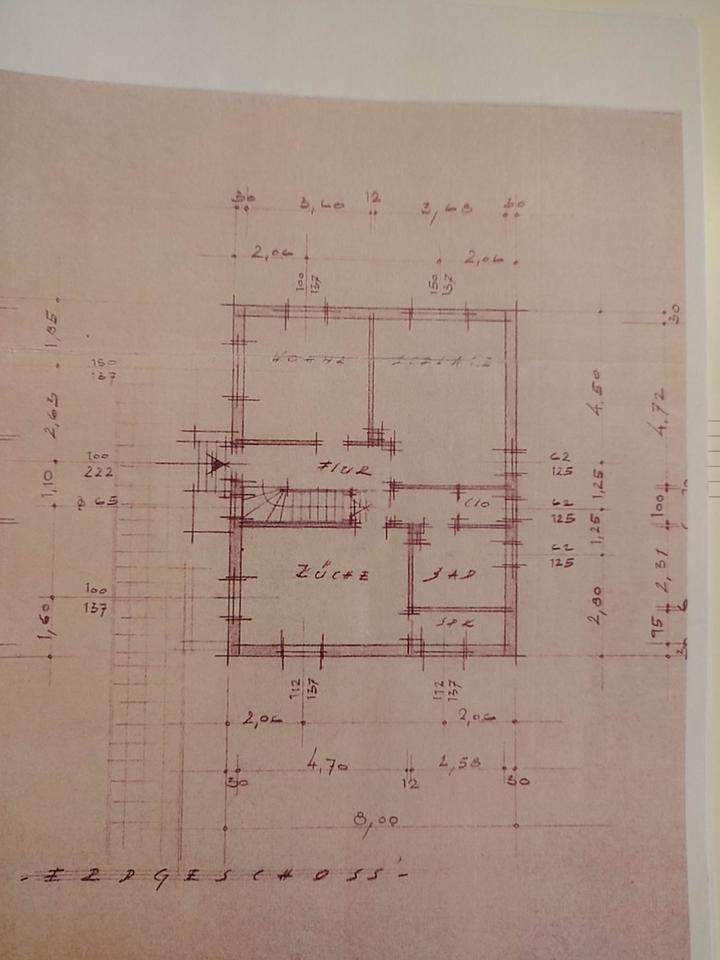 30 3,68 12 3,68 30
2,06 2,06
100
137
150
137
1,85
2,63
1,10
1,60
150
137
100
222
65
100
137
FLUR
CLO
KÜCHE
BAD
SPK
62
125
62
125
62
125
4,50
1,25
1,25
2,80
30
4,72
100
2,31
95
112
137
112
137
2,06 2,06
30 4,70 12 2,58 30
8,00
- ERDGESCHOSS -